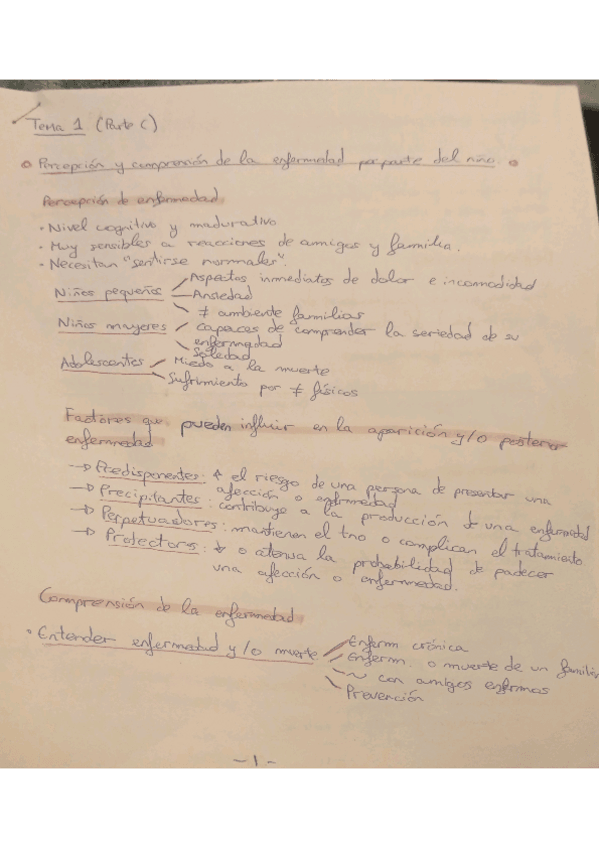 Tema 1 (Parte C)
Percepción y comprensión de la enfermedad por parte del niño.
Percepción de enfermedad
· Nivel cognitivo y madurativo
· Muy sensibles a reacciones de amigos y familia.
· Necesitan "sentirse normales".
Niños pequeños
Aspectos inmediatos de dolor e incomodidad
Ansiedad
≠ ambiente familias
Niños mayores
Capaces de comprender la seriedad de su
enfermedad
Soledad
Adolescentes
Miedo a la muerte
Sufrimiento por ≠ físicos
Factores que pueden influir en la aparición y/o posterior
enfermedad
--> Predisponentes: ↑ el riesgo de una persona de presentar una
afección o enfermedad
--> Precipitantes: contribuye a la producción de una enfermedad
--> Perpetuadores: mantienen el tno o complican el tratamiento.
--> Protectors: ↓ o atenua la probabilidad de padecer
una afección o enfermedad.
Comprensión de la enfermedad
· Entender enfermedad y/o muerte
Enferm crónica
Enferm. o muerte de un familia
~ con amigos enfermos
Prevención
-1-